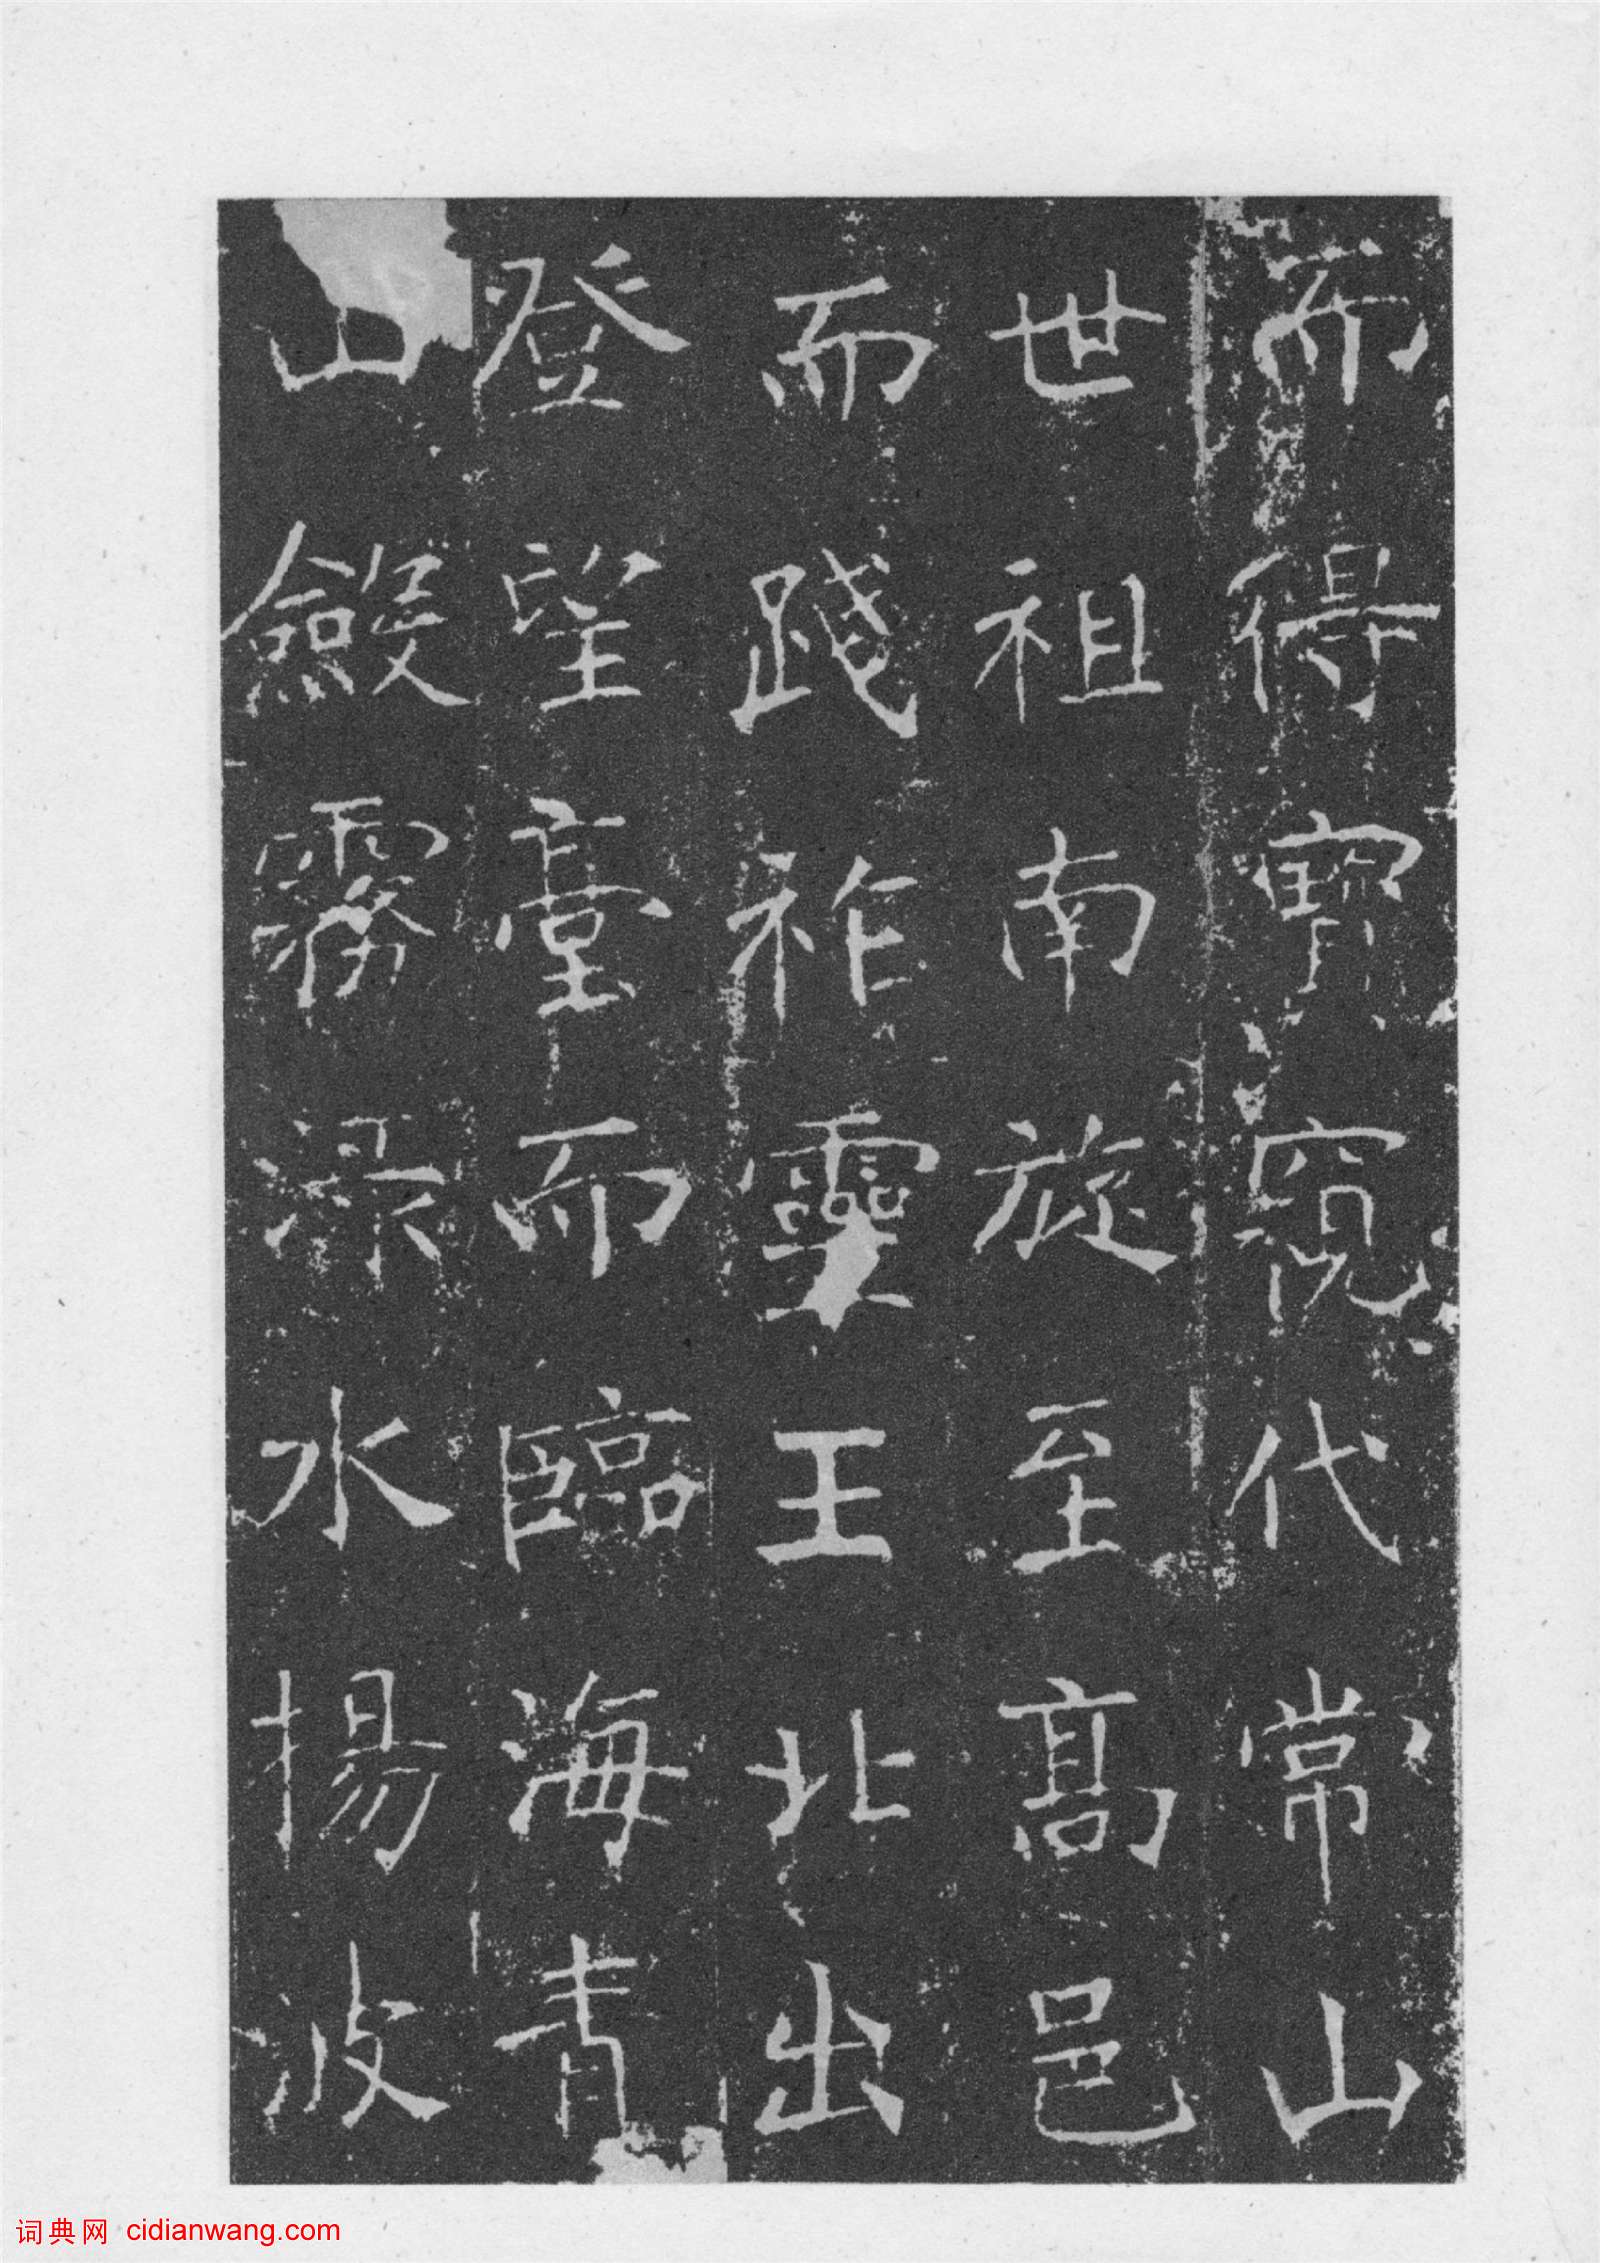 而得寶窺代常山
世祖南旋至高邑
而踐祚靈王北出
登望臺而臨海青
山斂霧淥水揚波
词典网 cidianwang.com